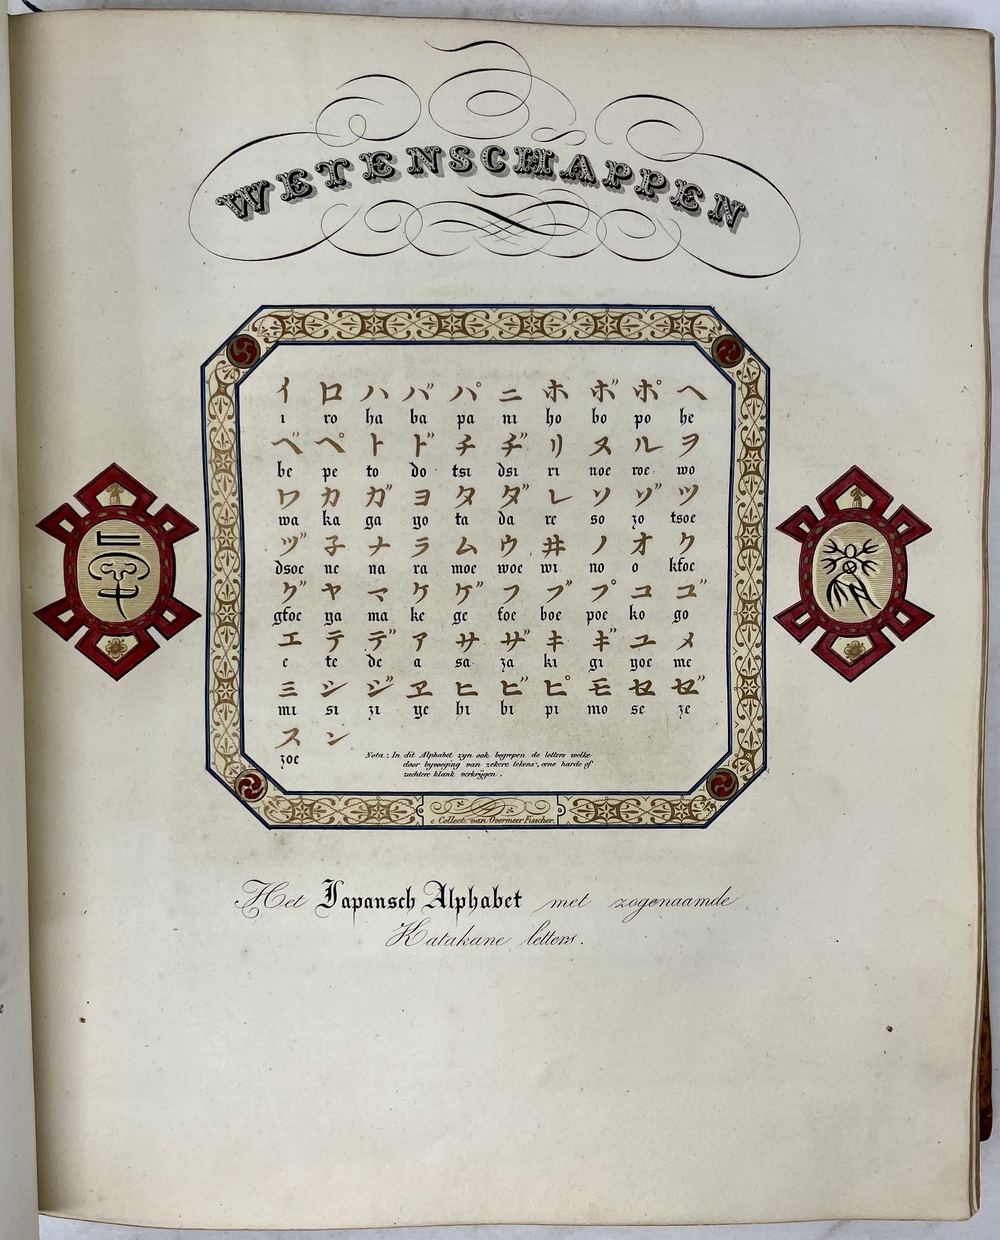 WETENSCHAPPEN
イ ロ ハ バ パ ニ ホ ボ ポ ヘ
i ro ha ba pa ni ho bo po he
ベ ペ ト ド チ ヂ リ ヌ ル ヲ
be pe to do tsi dsi ri noe roe wo
ワ カ ガ ヨ タ ダ レ ソ ゾ ツ
wa ka ga yo ta da re so zo tsoe
ヅ 子 ナ ラ ム ウ 井 ノ オ ク
dsoe ne na ra moe woe wi no o kfoe
グ ヤ マ ケ ゲ フ ブ プ コ ゴ
gfoe ya ma ke ge foe boe poe ko go
エ テ デ ア サ ザ キ ギ ユ メ
e te de a sa za ki gi yoe me
ミ シ ジ ヱ ヒ ビ ピ モ セ ゼ
mi si zi ye hi bi pi mo se ze
ス ン
zoe
Nota: In dit Alphabet zyn ook begrepen de letters welke
door byvoeging van zekere tekens, eene harde of
zachtere klank verkrijgen.
é Collect. van Overmeer Fisscher.
Het Japansch Alphabet met zogenaamde
Katakane letters.